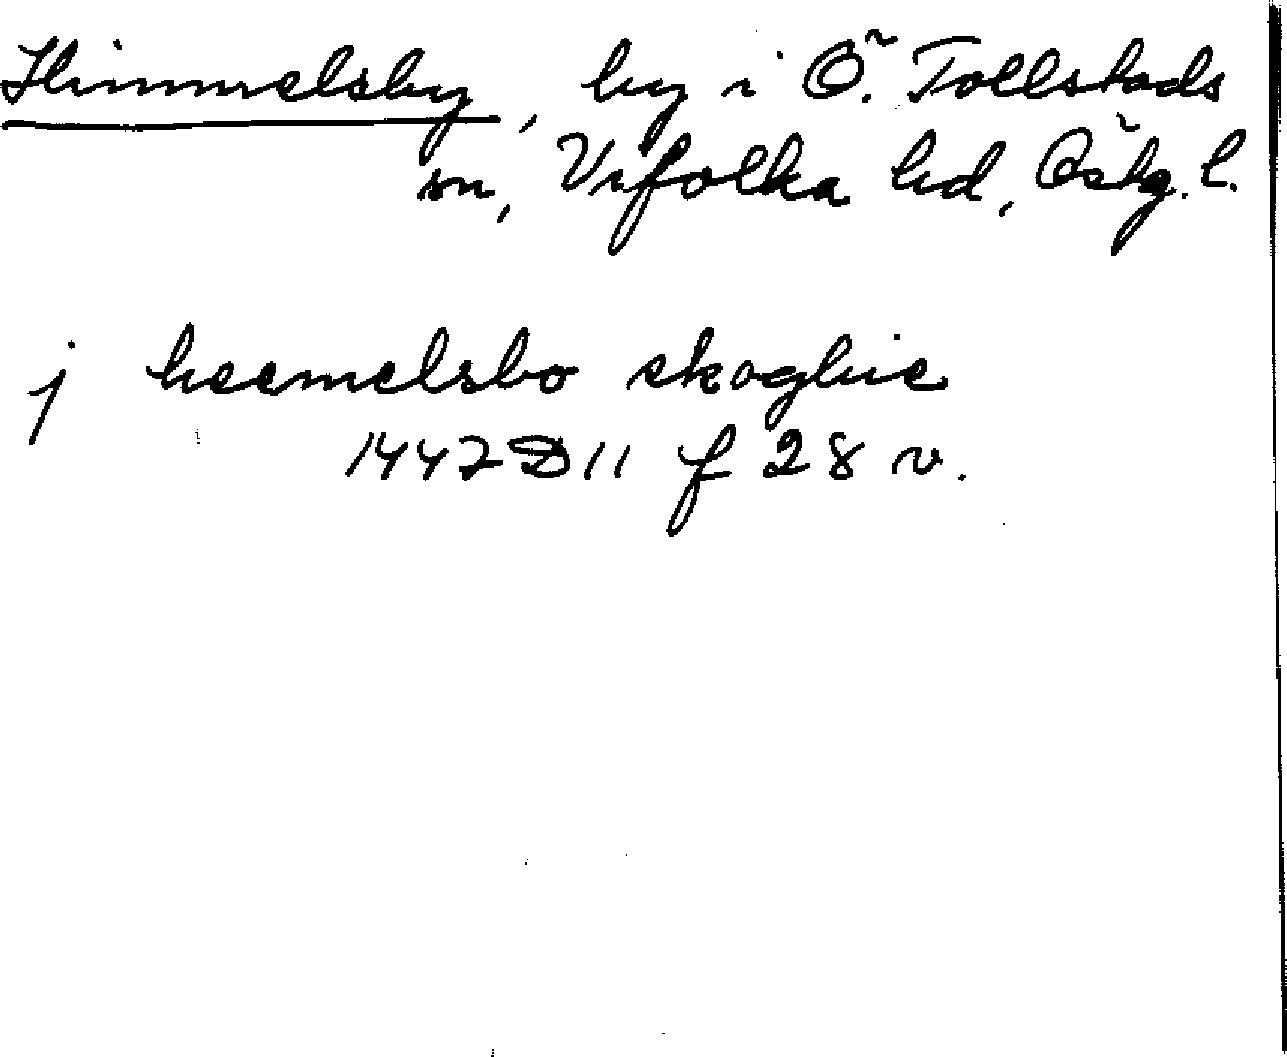 Himmelsby, by i Ö. Tollstads
sn, Vifolka hd, Östg. l.
j heemelsbo skoghie
1447 D 11 f 28 v.